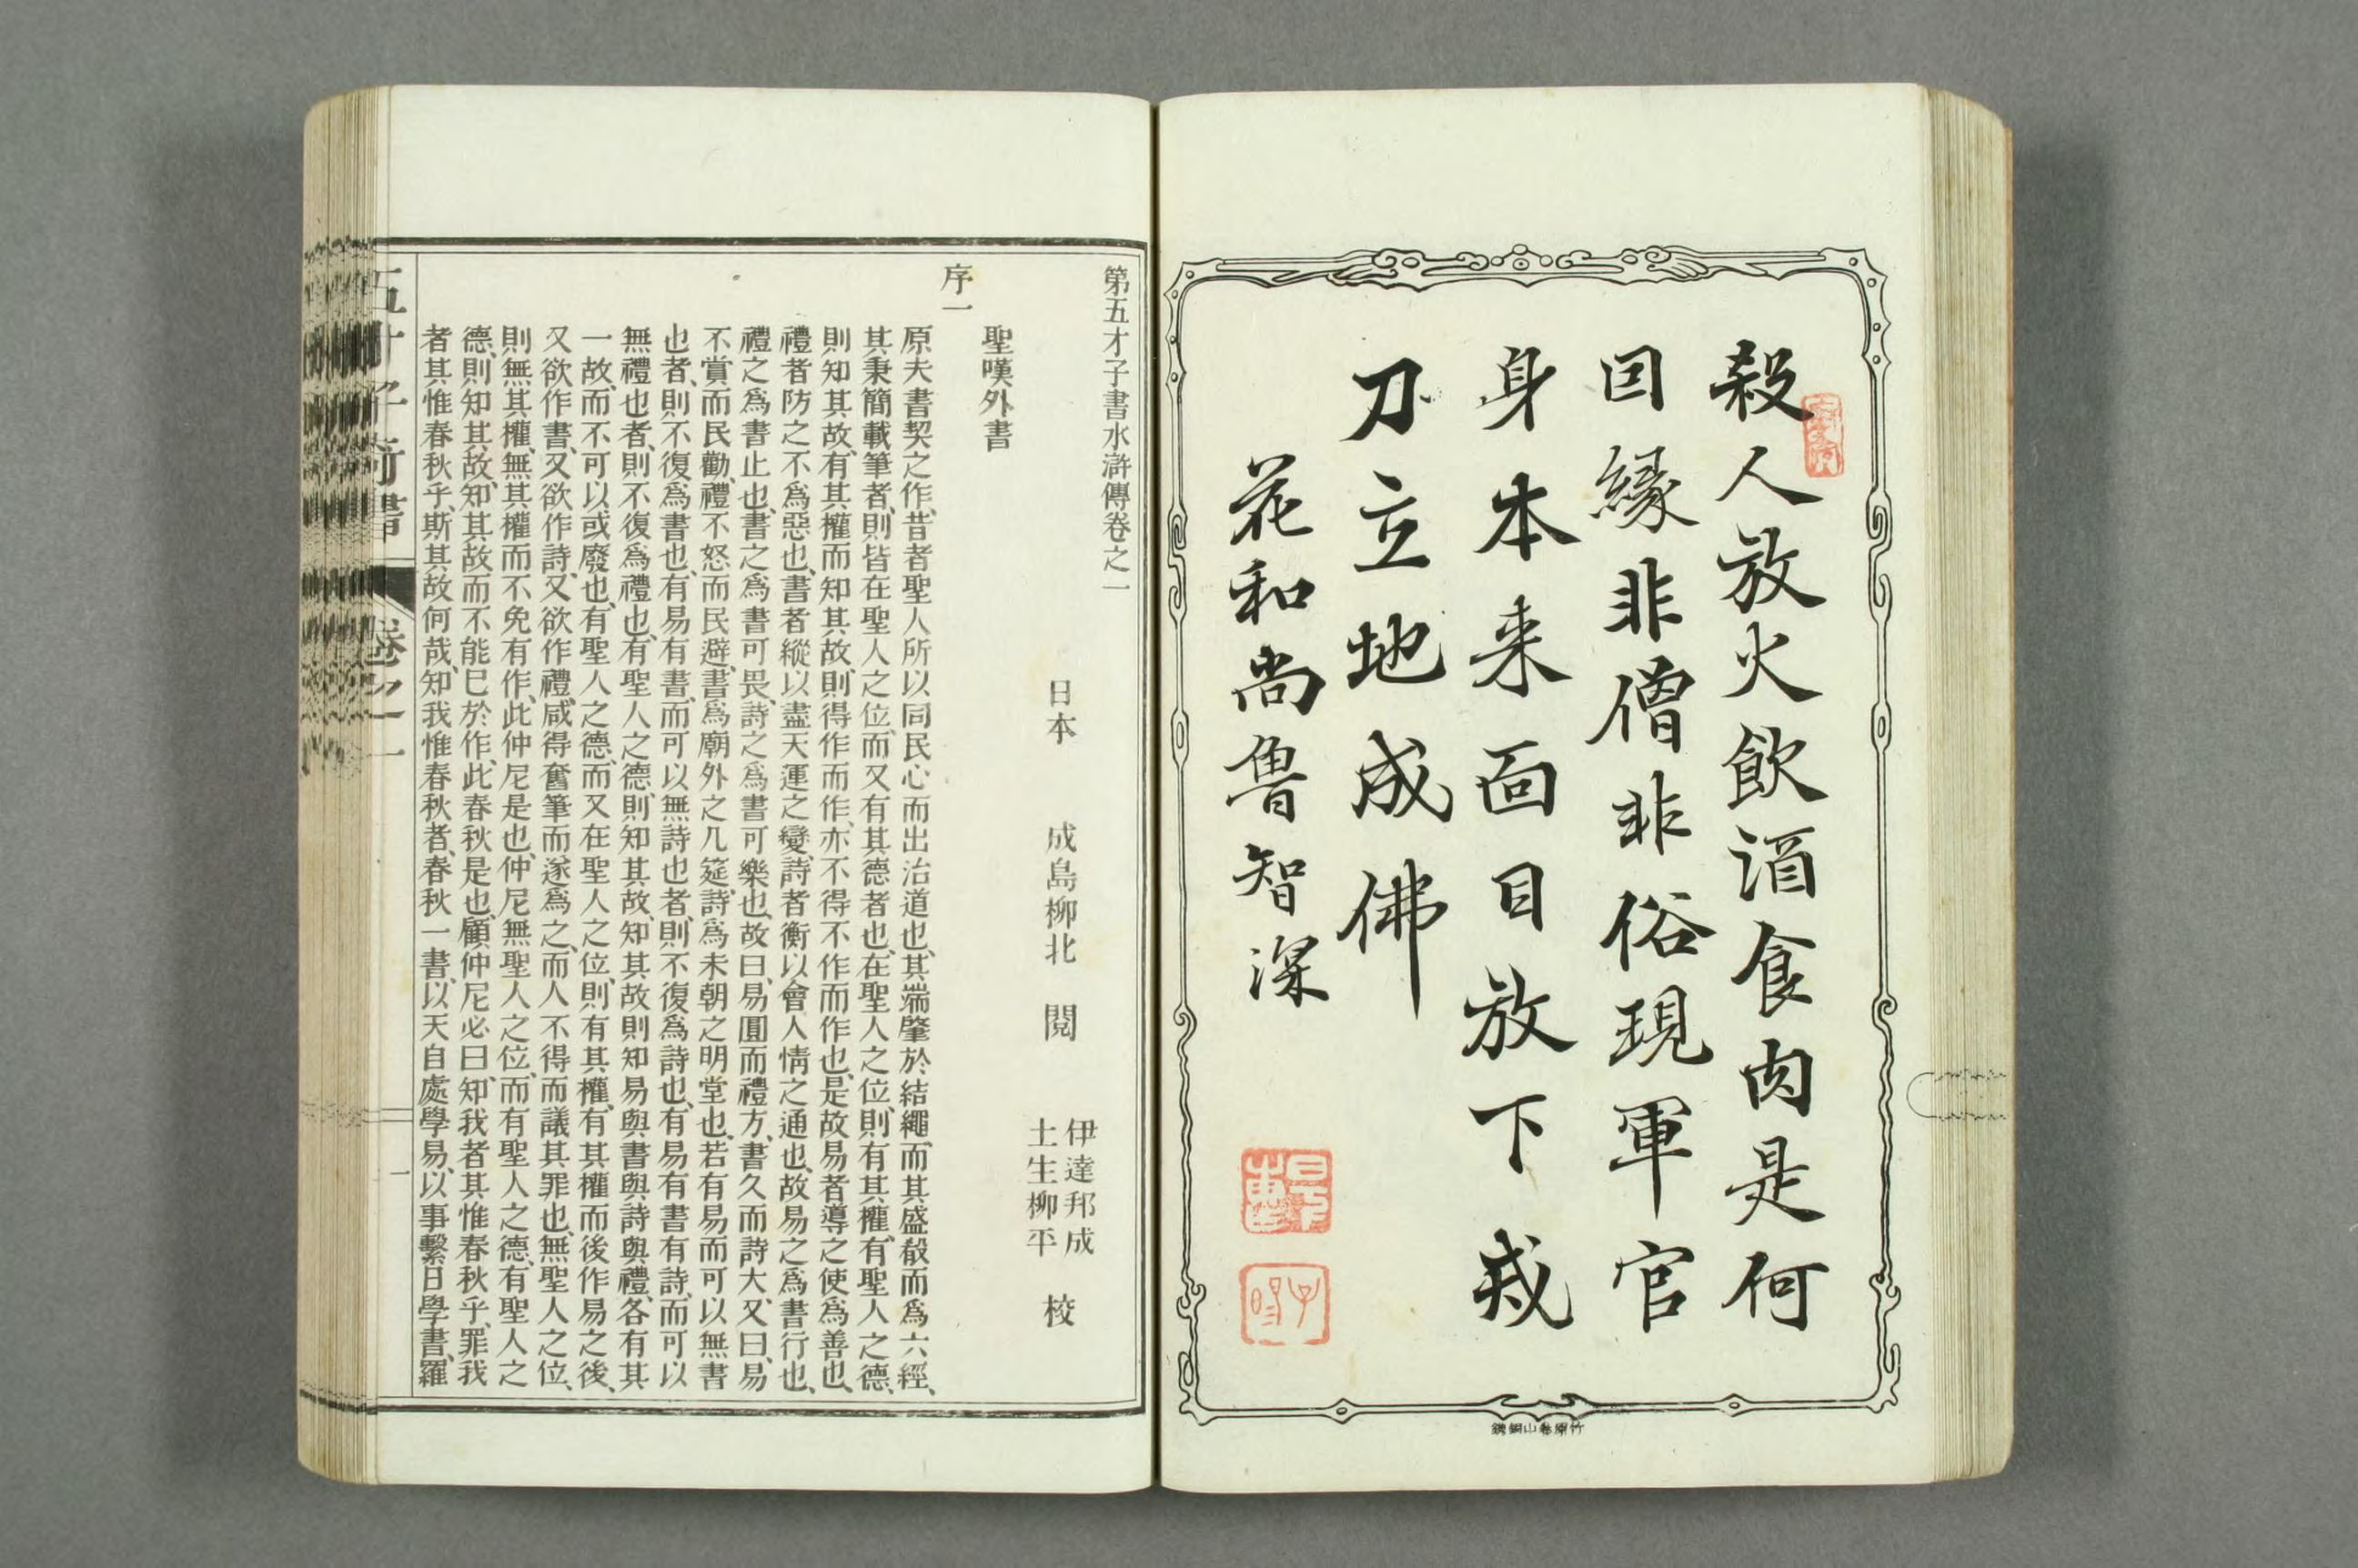 殺人放火飲酒食肉是何
因縁非僧非俗現軍官
身本来面目放下戎
刀立地成佛
花和尚魯智深
竹原巻山銅鐫
第五才子書水滸傳卷之一
日本 成島柳北 閱 伊達邦成
土生柳平 校
聖嘆外書
序一
原夫書契之作、昔者聖人所以同民心而出治道也、其端肇於結繩、而其盛殽而爲六經、
其秉簡載筆者、則皆在聖人之位、而又有其德者也、在聖人之位、則有其權、有聖人之德、
則知其故、有其權而知其故、則得作而作、亦不得不作而作也、是故易者導之使爲善也、
禮者防之不爲惡也、書者縱以盡天運之變、詩者衡以會人情之通也、故易之爲書行也、
禮之爲書止也、書之爲書可畏、詩之爲書可樂也、故曰、易圓而禮方、書久而詩大、又曰、易
不賞而民勸、禮不怒而民避、書爲廟外之几筵、詩爲未朝之明堂也、若有易而可以無書
也者、則不復爲書也、有易有書、而可以無詩也者、則不復爲詩也、有易有書有詩、而可以
無禮也者、則不復爲禮也、有聖人之德、則知其故、知其故則知易與書與詩與禮、各有其
一故、而不可以或廢也、有聖人之德、而又在聖人之位、則有其權、有其權而後作易、之後、
又欲作書、又欲作詩、又欲作禮、咸得奮筆而遂爲之、而人不得而議其罪也、無聖人之位、
則無其權、無其權而不免有作、此仲尼是也、仲尼無聖人之位、而有聖人之德、有聖人之
德、則知其故、知其故而不能巳於作、此春秋是也、顧仲尼必曰、知我者其惟春秋乎、罪我
者其惟春秋乎、斯其故何哉、知我惟春秋者、春秋一書、以天自處學易、以事繫日學書、羅
五才子奇書
卷之一
一